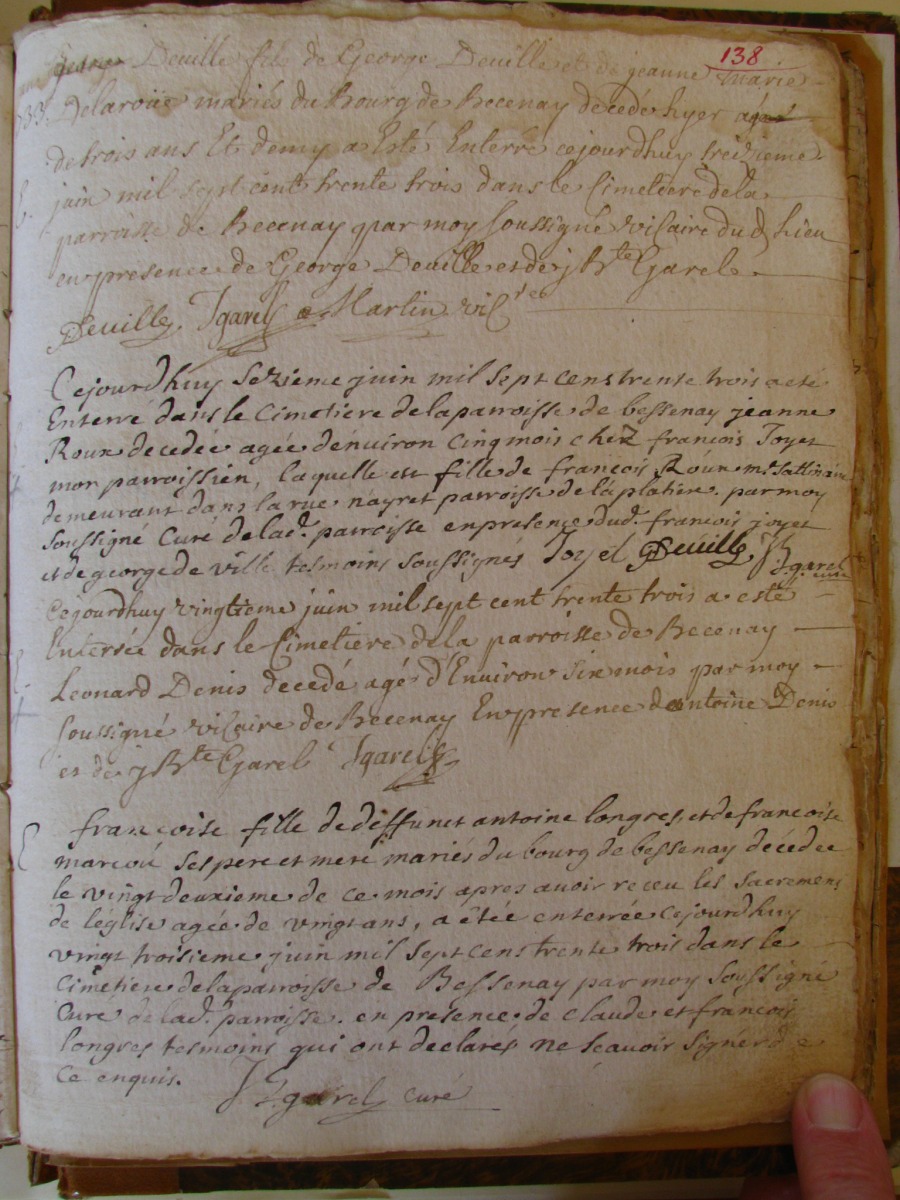 138
george Deville fils de George Deville et de jeanne Marie
Delaroüe mariés du Bourg de Becenay decedé hyer agé
de trois ans Et demy a Esté Enterré cejourdhuy treizieme
juin mil sept cent trente trois dans le Cimetiere de la
parroisse de Becenay par moy soussigné viCaire dud Lieu
en presence de George Deville et de j Bte Garel
Deville, Jgarel Martin vic
Cejourdhuy seizieme juin mil sept cens trente trois a eté
Enterré dans le Cimetiere de la parroisse de bessenay jeanne
Roux decedée agée d'enuiron cinq mois chez francois Joyet
mon parroissien, laquelle est fille de francois Roux me
demeurant dans la rue nayret parroisse de la platiere. par moy
soussigné Curé de lad. parroisse en presence dud. francois joyet
et de george de ville tesmoins soussignés Joyel Deuille, Jgarel
curé
Cejourdhuy vingtieme juin mil sept cent trente trois a esté
Enterrée dans le Cimetiere de la parroisse de Becenay
Leonard Denis decedé agé d'Enuiron six mois par moy
soussigné viCaire de Becenay En presence dantoine Denis
et de j Bte Garel Jgarel
francoise fille de deffunct antoine longres, et de francoise
marcoú ses pere et mere mariés du bourg de bessenay décedée
le vingt deuxieme de ce mois apres auoir receu les sacremens
de léglise agée de vingt ans, a étée enterrée cejourdhuy
vingt troisieme juin mil sept cens trente trois dans le
Cimetiere de la parroisse de Bessenay par moy soussigné
Curé de lad. parroisse. en presence de claude et francois
longres tesmoins qui ont declarés ne scauoir signér de
ce enquis.
Jgarel curé